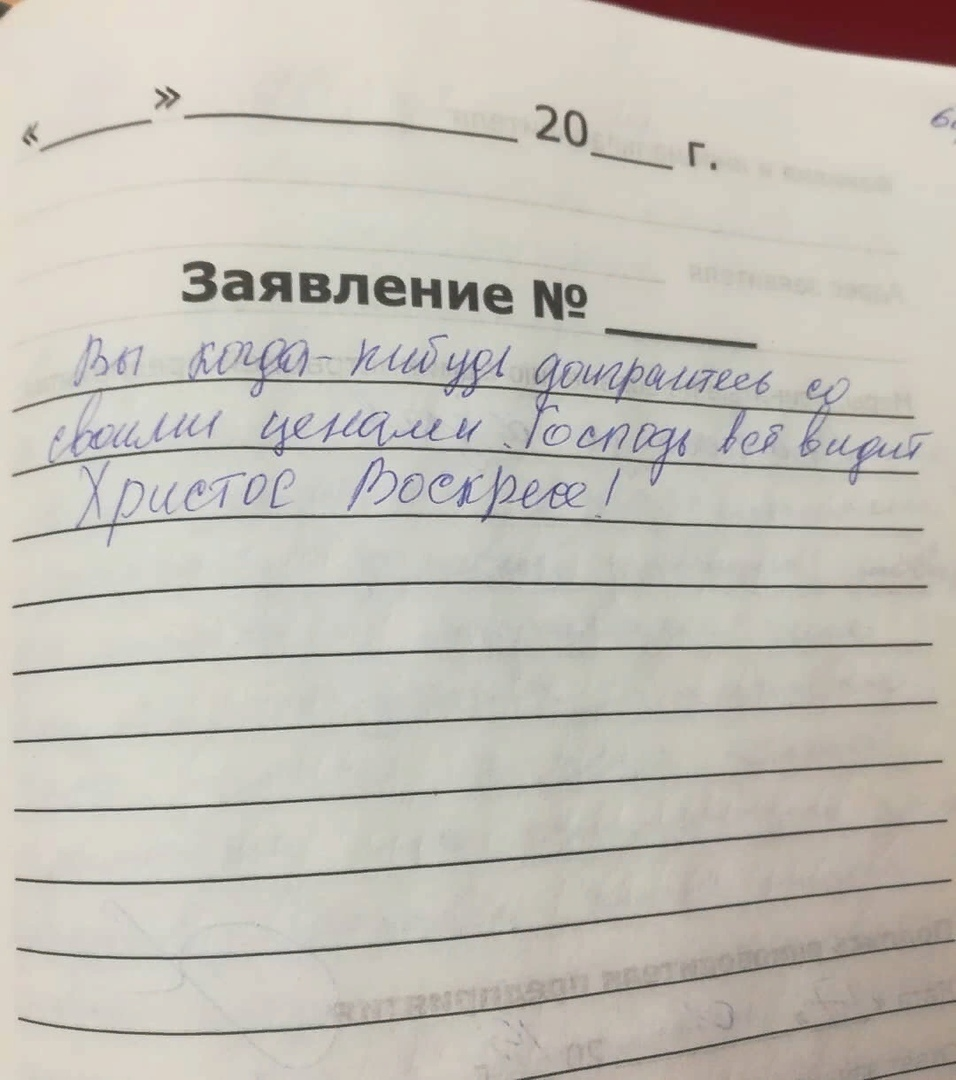 «____»______________ 20____ г.
Заявление № _____
Вы когда-нибудь доиграитесь со
своими ценами. Господь всё видит
Христос Воскресе!